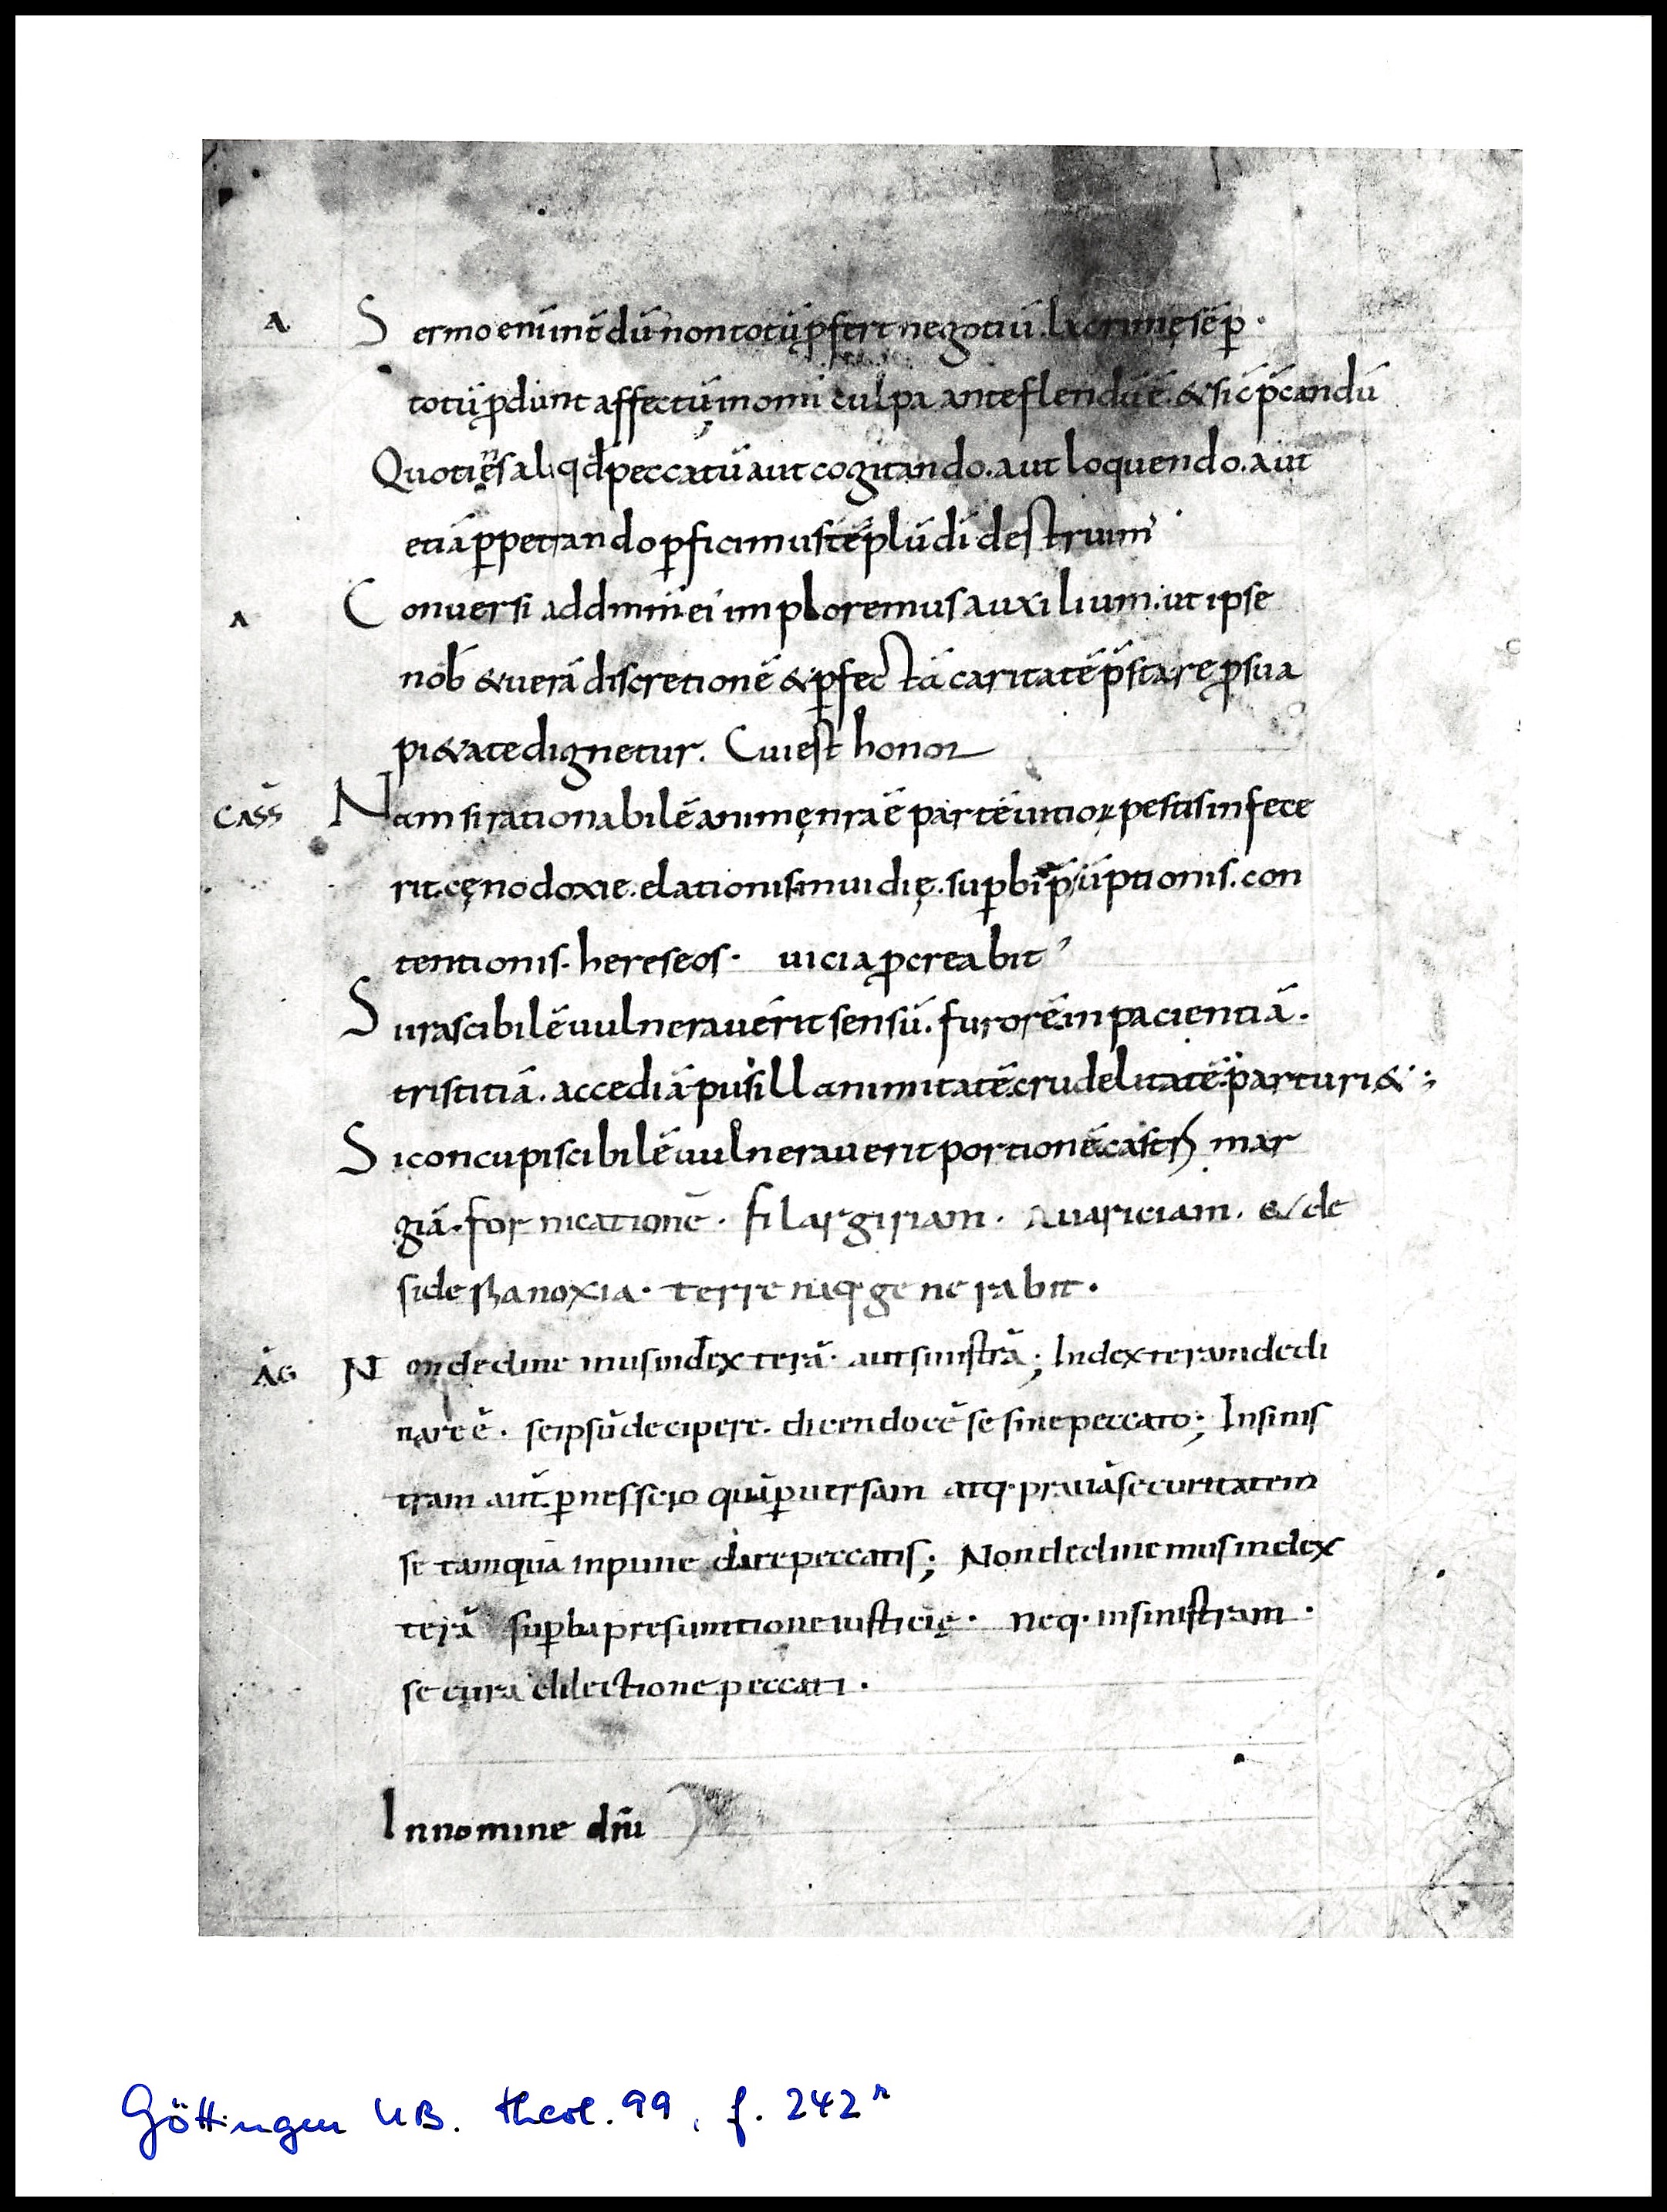 A. Sermo enī int̄dū non totū ꝓfert negotiū. lacrimę sēꝑ ·
totū ꝓdunt affectū in om̄i culpa ante flendū ē. & sic p̄candū
Quotiēs aliqd̄ peccatū aut cogitando. aut loquendo. aut
etiā ꝑpetrando ꝑficimus tēplū dī destruim' ·
A Conversi ad dnm̄ ei imploremus auxilium. ut ipse
nob̄ & uerā discretionē & ꝑfectā caritatē p̄stare ꝓ sua
pi&ate dignetur. Cui est honor
CASS̄ Nam si rationabilē animę nrāe partē uitioꝝ pestis infece
rit. cęnodoxie. elationis. inuidię. suꝑbi. p̄sūptionis. con
tentionis. hereseos · uicia ꝓcreabit
Si irascibilē uulnerauerit sensū. furorē. inpacientiā.
tristitiā. accediā. pusillanimitatē. crudelitatē. parturi& ;
Si concupiscibilē uulnerauerit portionē. castrh mar
giā. fornicationē · filargiriam · Auariciam. & de
side rhanoxia · terreniaq; generabit ·
ĀG Non declinemus in dexterā · aut sinistrā ; In dexteram decli
nare ē · seipsū decipere. dicendo cē se sine peccato ; In sinis
tram aut̄. ꝑ nessejo quā ꝑuersam atq · prauā securitatem
se tamquā inpune dare peccatis ; Non declinemus in dex
terā suꝑba presumtione iusticię · neq · in sinistram ·
secura dilectione peccati ·
In nomine dn̄i
Göttingen UB. theol. 99, f. 242ʳ